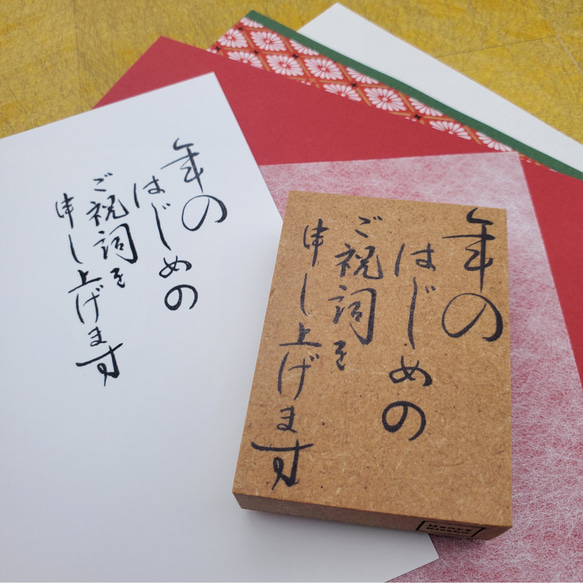 年の
はじめの
ご祝詞を
申し上げます
年の
はじめの
ご祝詞を
申し上げます